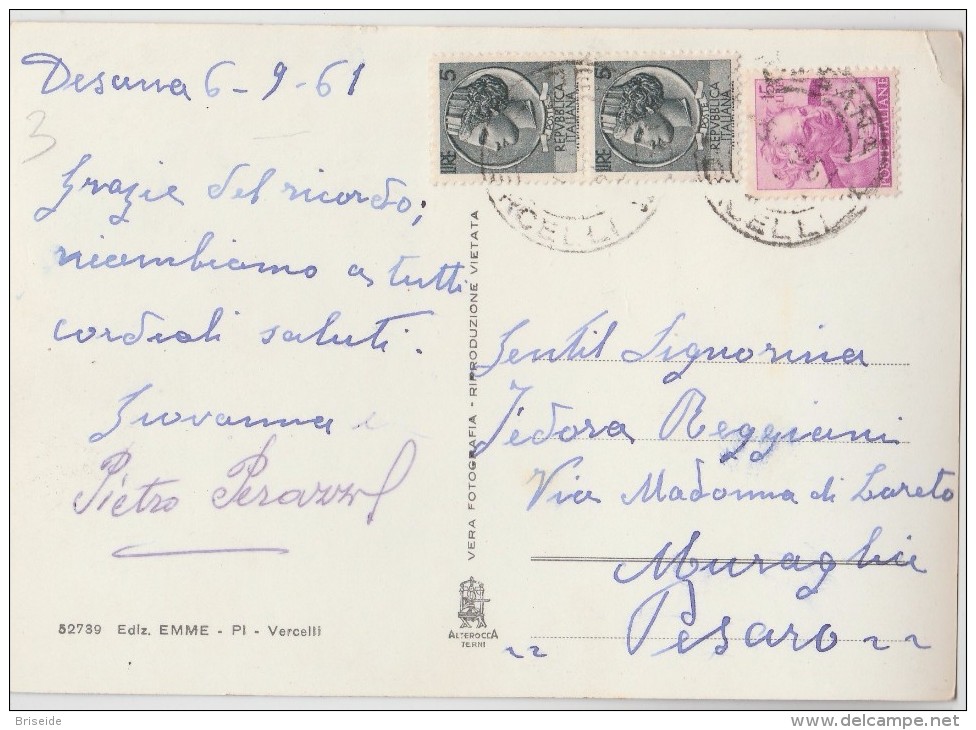 Desana 6-9-61
3
Grazie del ricordo;
ricambiamo a tutti
cordiali saluti.
Giovanna e
Pietro Perazzo
52739 Ediz. EMME - PI - Vercelli
VERA FOTOGRAFIA - RIPRODUZIONE VIETATA
ALTEROCCA
TERNI
5
LIRE
POSTE
REPVBBLICA
ITALIANA
5
LIRE
POSTE
REPVBBLICA
ITALIANA
15
LIRE
POSTE ITALIANE
RCELLI
RCELLI
Gentil Signorina
Fedora Reggiani
Via Madonna di Loreto
Muraglia
Pesaro
Briseide
www.delcampe.net